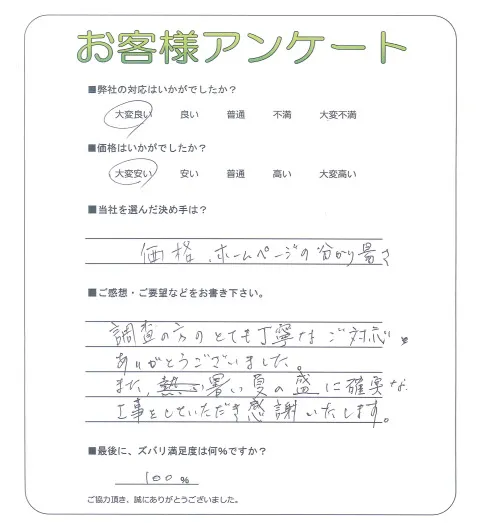 お客様アンケート
■弊社の対応はいかがでしたか？
大変良い 良い 普通 不満 大変不満
■価格はいかがでしたか？
大変安い 安い 普通 高い 大変高い
■当社を選んだ決め手は？
価格、ホームページの分かり易さ
■ご感想・ご要望などをお書き下さい。
調査の方のとても丁寧なご対応、
ありがとうございました。
また、熱い暑い夏の盛に確実な
工事をしていただき感謝いたします。
■最後に、ズバリ満足度は何％ですか？
100％
ご協力頂き、誠にありがとうございました。